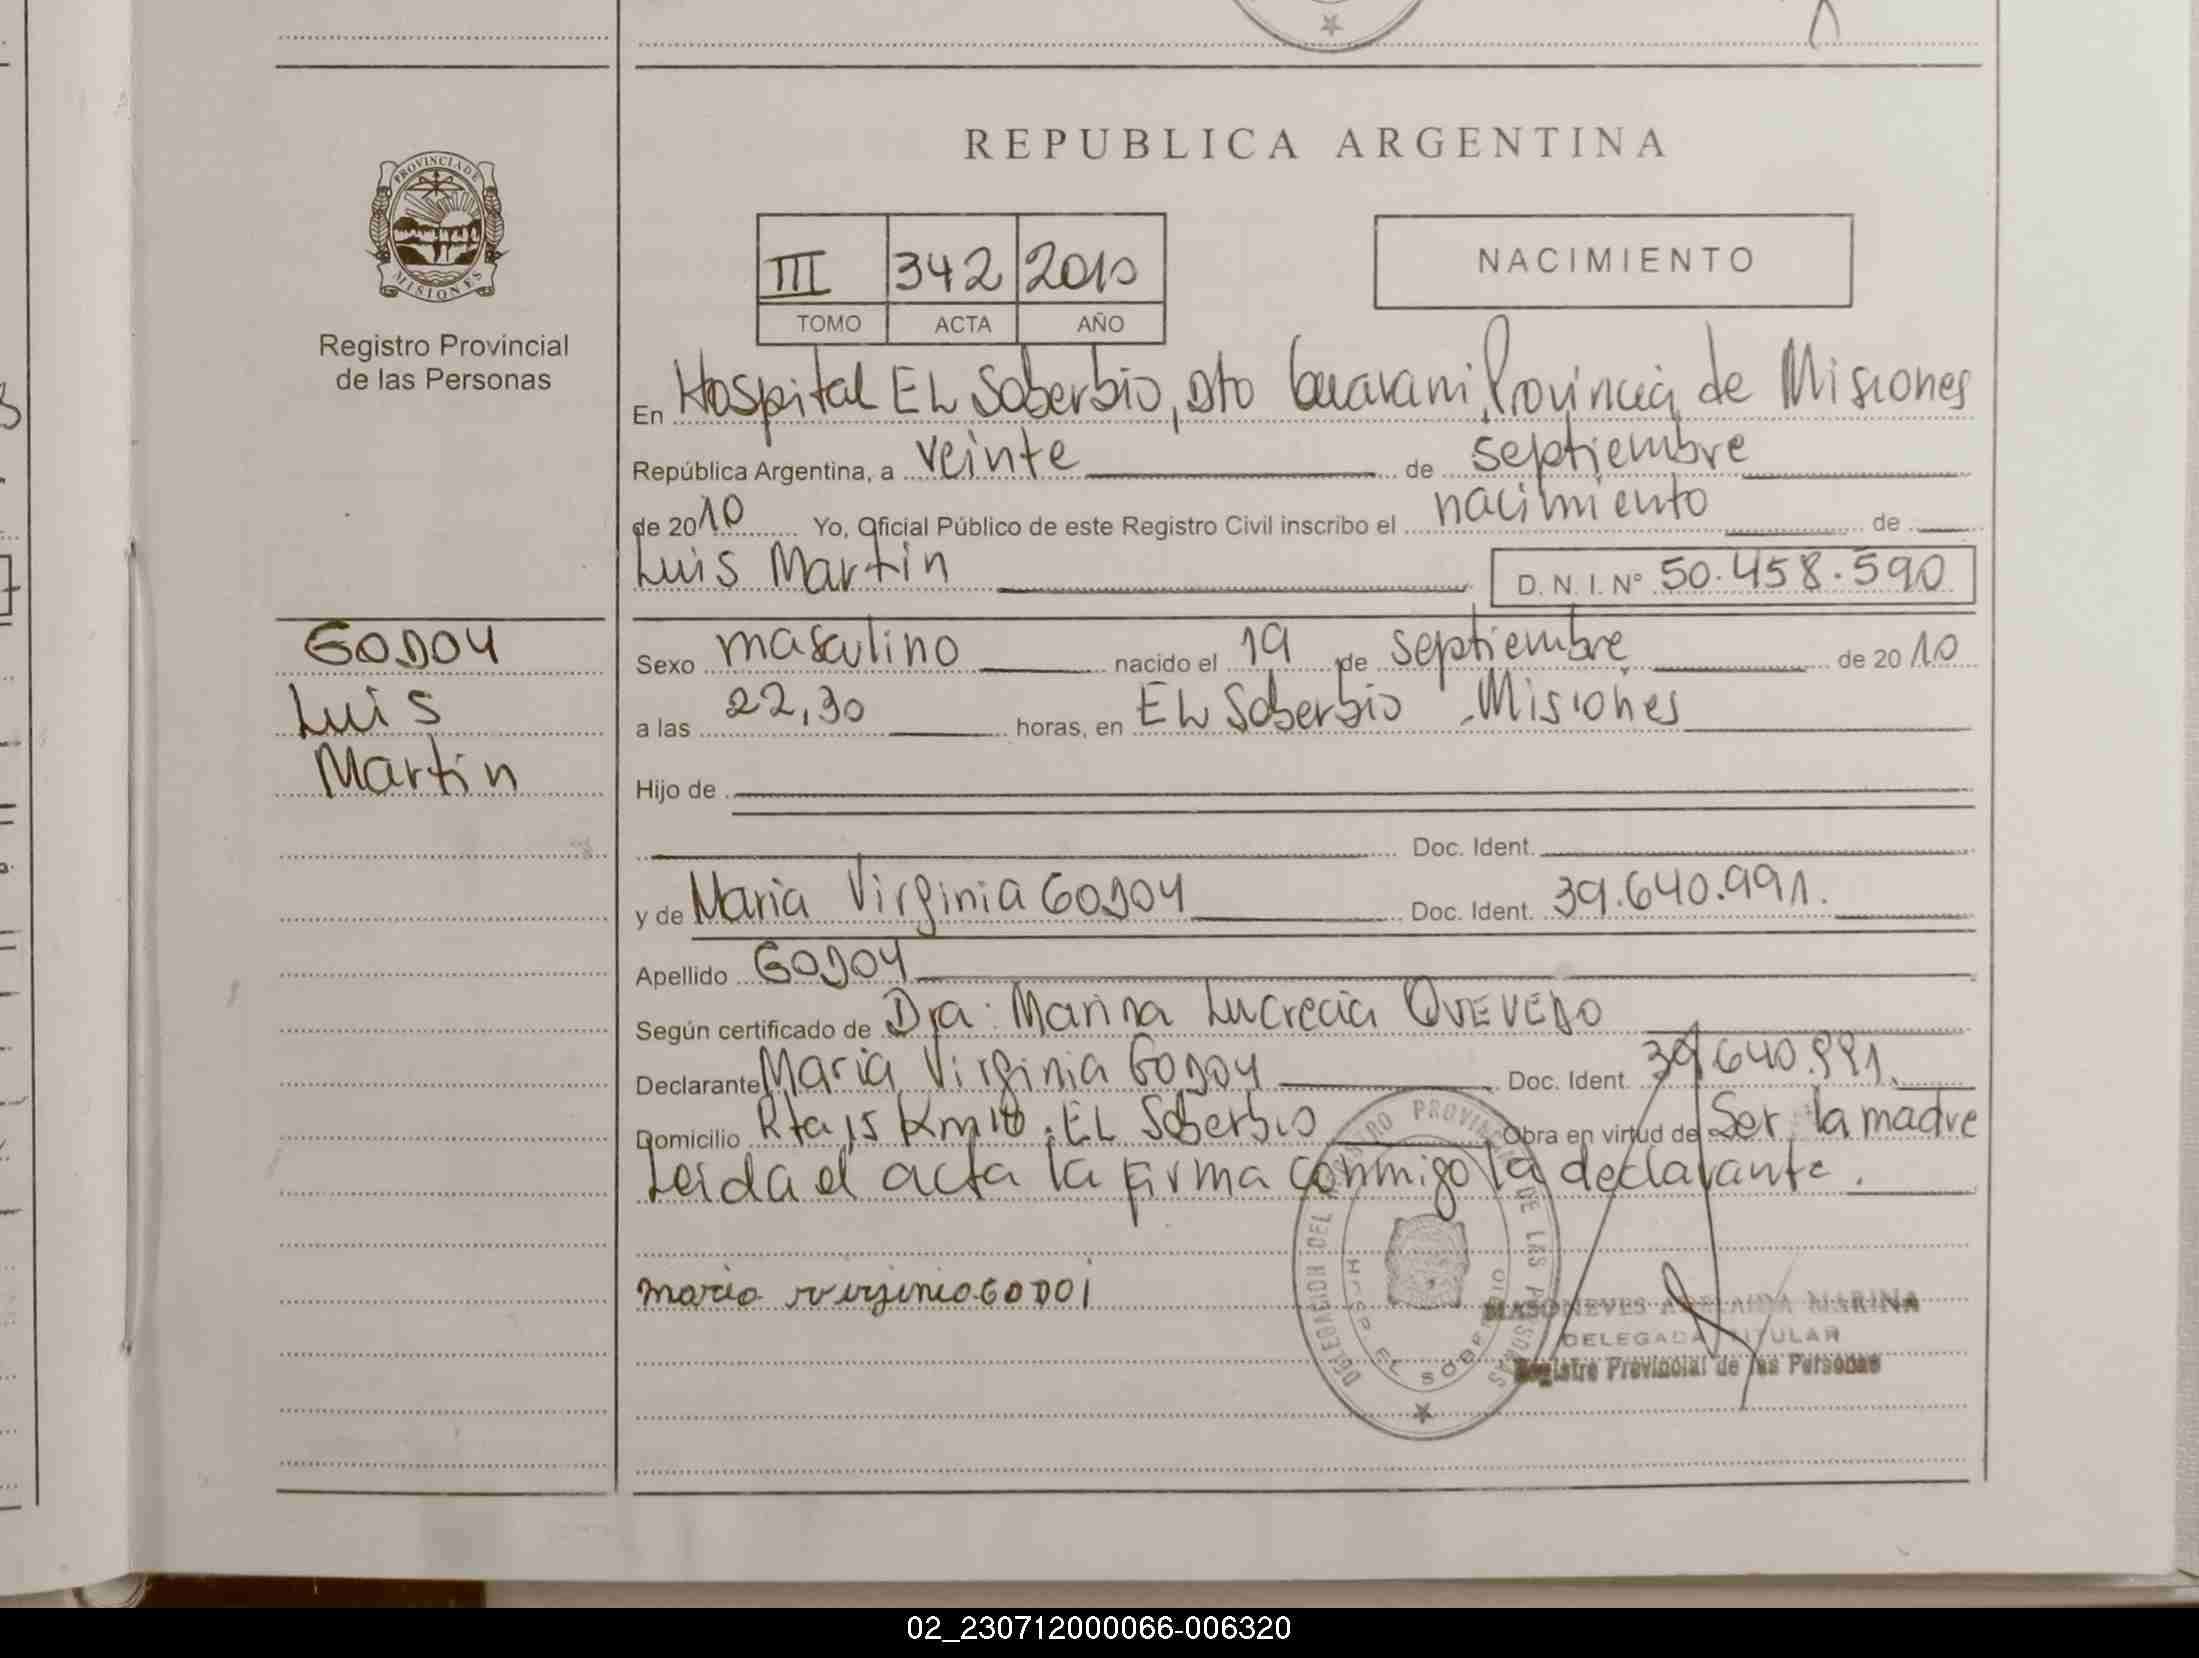 REPUBLICA ARGENTINA
PROVINCIA DE
MISIONES
Registro Provincial
de las Personas
III 342 2010
TOMO ACTA AÑO
NACIMIENTO
En Hospital EL Soberbio, Dto Guarani, Provincia de Misiones
República Argentina, a veinte de septiembre
de 2010 Yo, Oficial Público de este Registro Civil inscribo el nacimiento de
Luis Martin D.N.I. Nº 50.458.590
GODOY
Luis
Martin
Sexo masculino nacido el 19 de septiembre de 2010
a las 22,30 horas, en EL Soberbio - Misiones
Hijo de
Doc. Ident.
y de Maria Virginia GODOY Doc. Ident. 39.640.991.
Apellido GODOY
Según certificado de Dra: Marina Lucrecia QUEVEDO
Declarante Maria Virginia GODOY Doc. Ident. 39.640.991.
Domicilio Rta 15 Km 10. EL Soberbio Obra en virtud de Ser la madre
Leida el acta la firma conmigo la declarante.
maria virginia GODOI
DELEGACION DEL REGISTRO PROVINCIAL DE LAS PERSONAS
HOSP. EL SOBERBIO
MARINA
DELEGADA TITULAR
Registro Provincial de las Personas
02_230712000066-006320